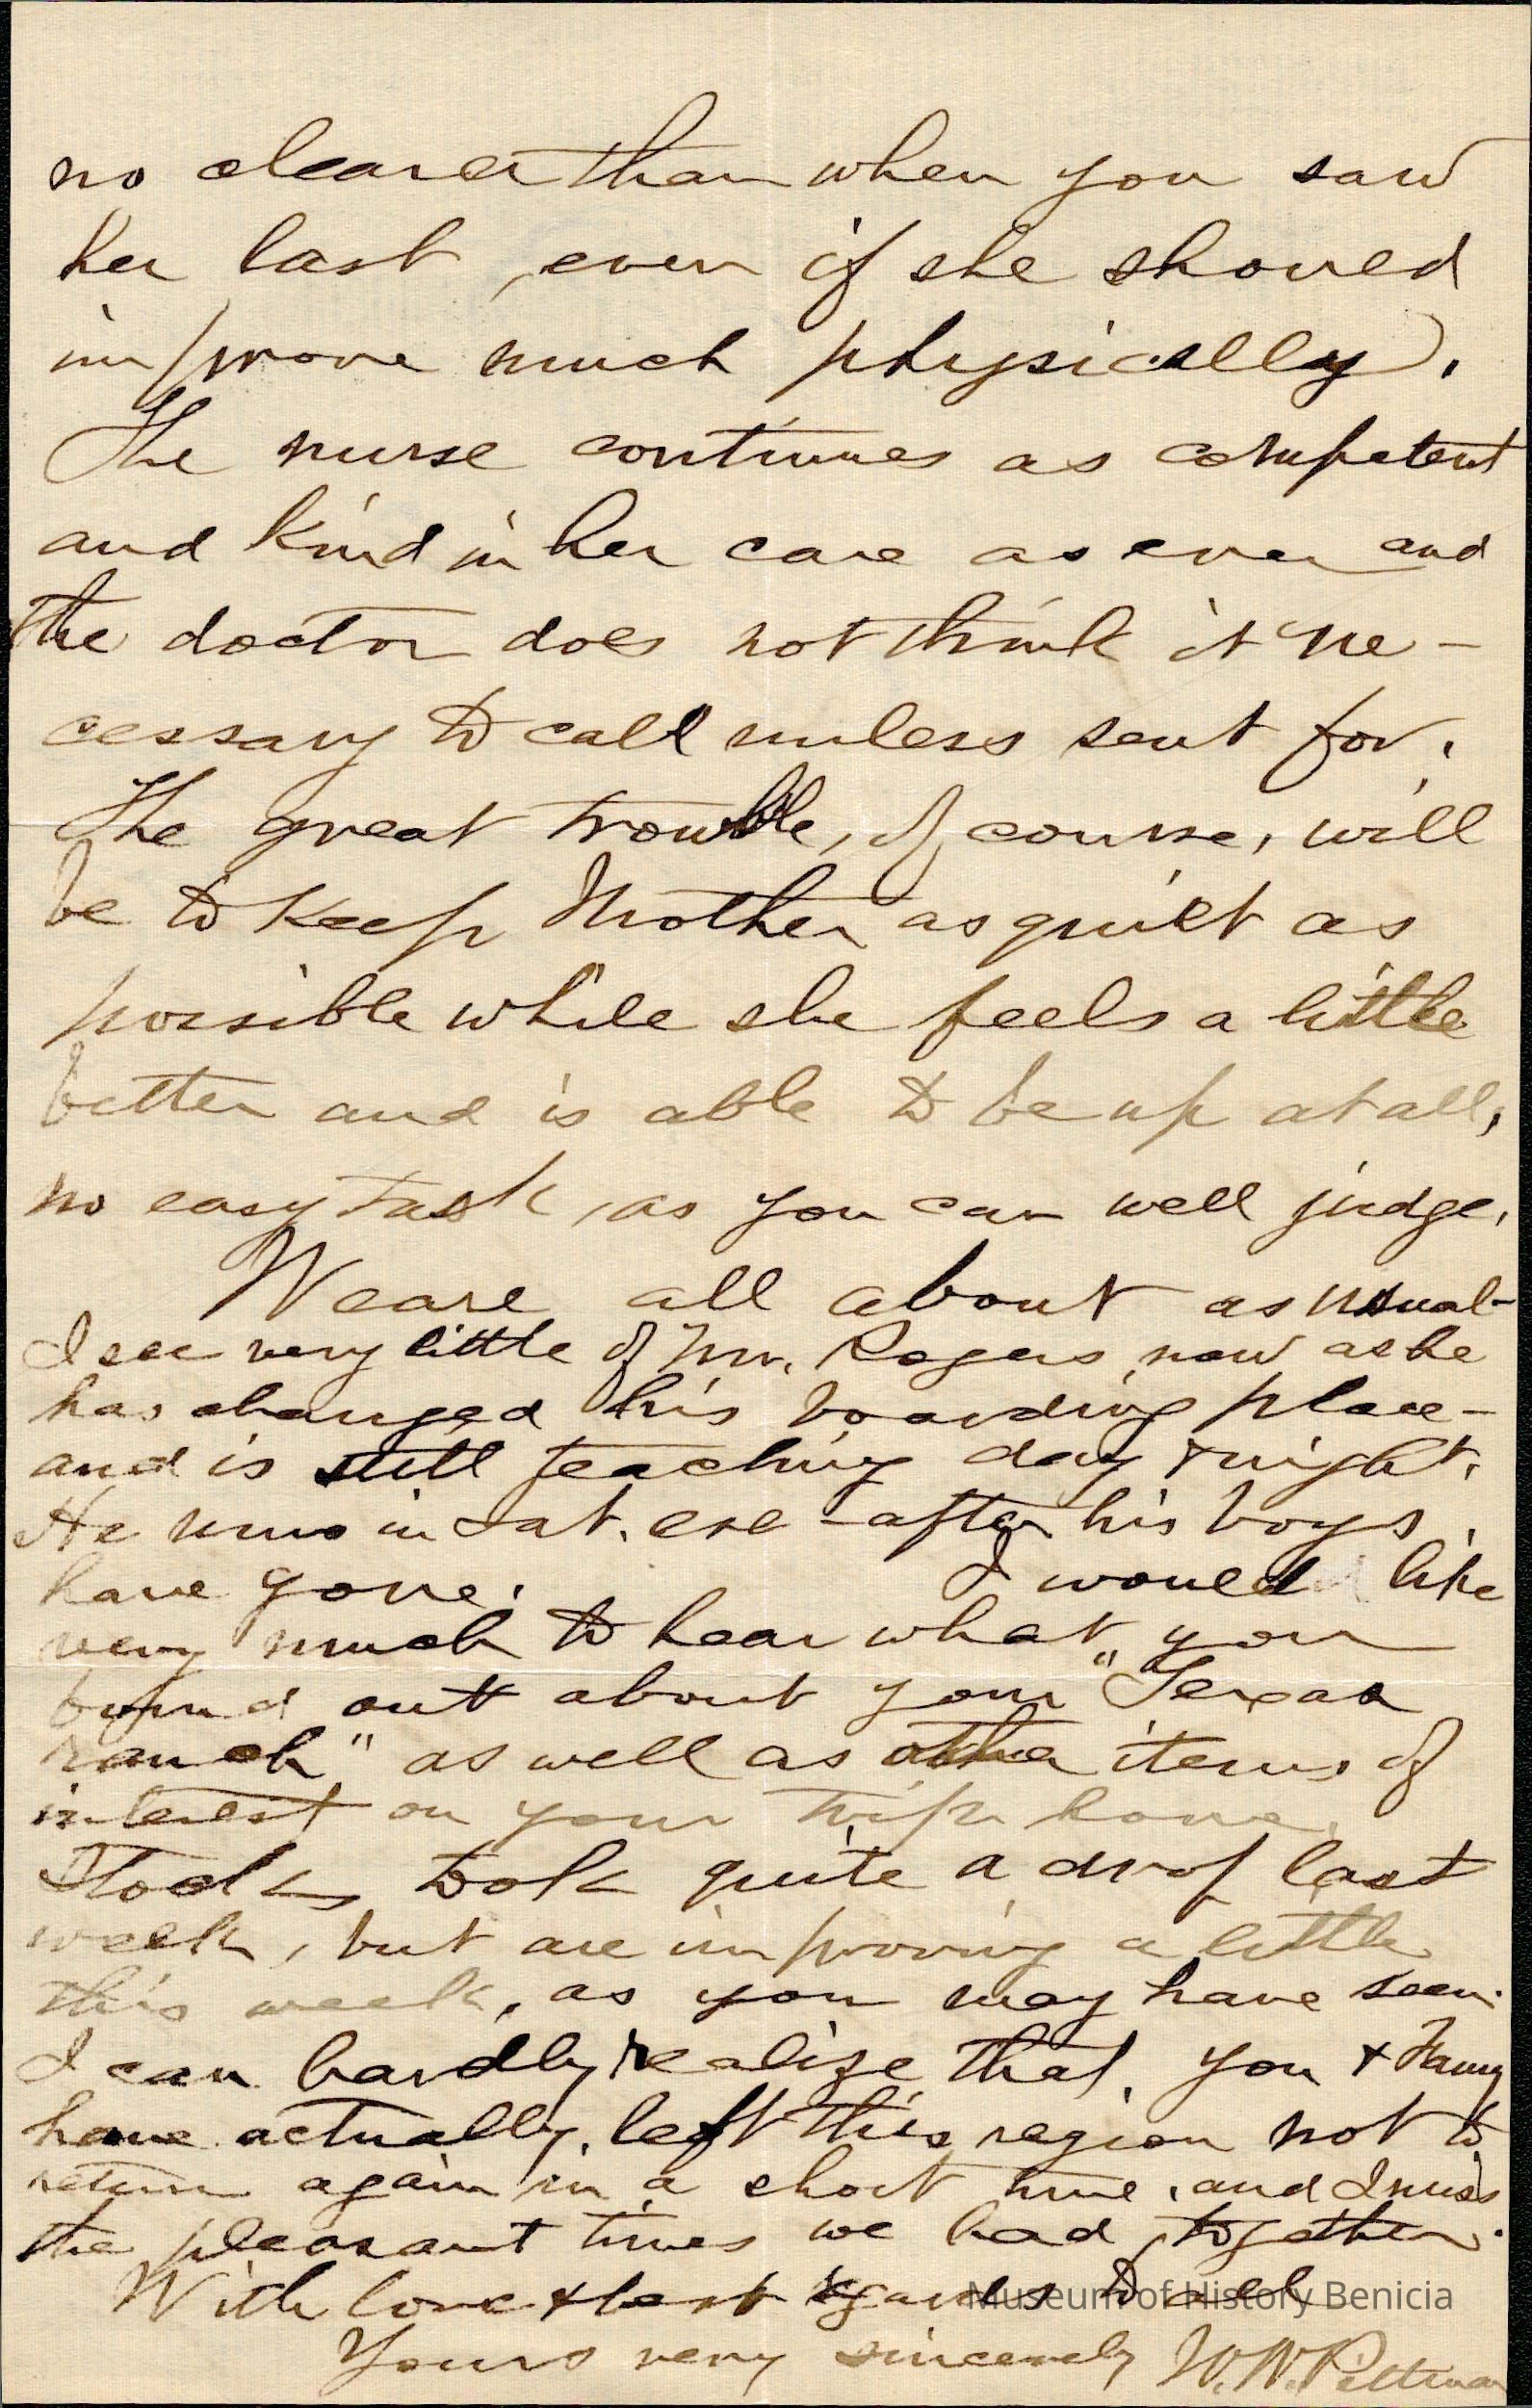 no clearer than when you saw
her last, even if she should
improve much physically.
The nurse continues as competent
and kind in her care as ever and
the doctor does not think it ne-
cessary to call unless sent for.
The great trouble, of course, will
be to keep Mother as quiet as
possible while she feels a little
better and is able to be up at all,
no easy task, as you can well judge.
We are all about as usual-
I see very little of Mr. Rogers now as he
has changed his boarding place-
and is still teaching day & night.
He runs in Sat. eve - after his boys
have gone. I would like
very much to hear what you
found out about your "Texas
ranch" as well as other items of
interest on your trip home.
Stocks took quite a drop last
week, but are improving a little
this week, as you may have seen.
I can hardly realize that you & Fanny
have actually left this region not to
return again in a short time, and I miss
the pleasant times we had together.
With love & best regards to all
Yours very sincerely W.W. Pittman
Museum of History Benicia